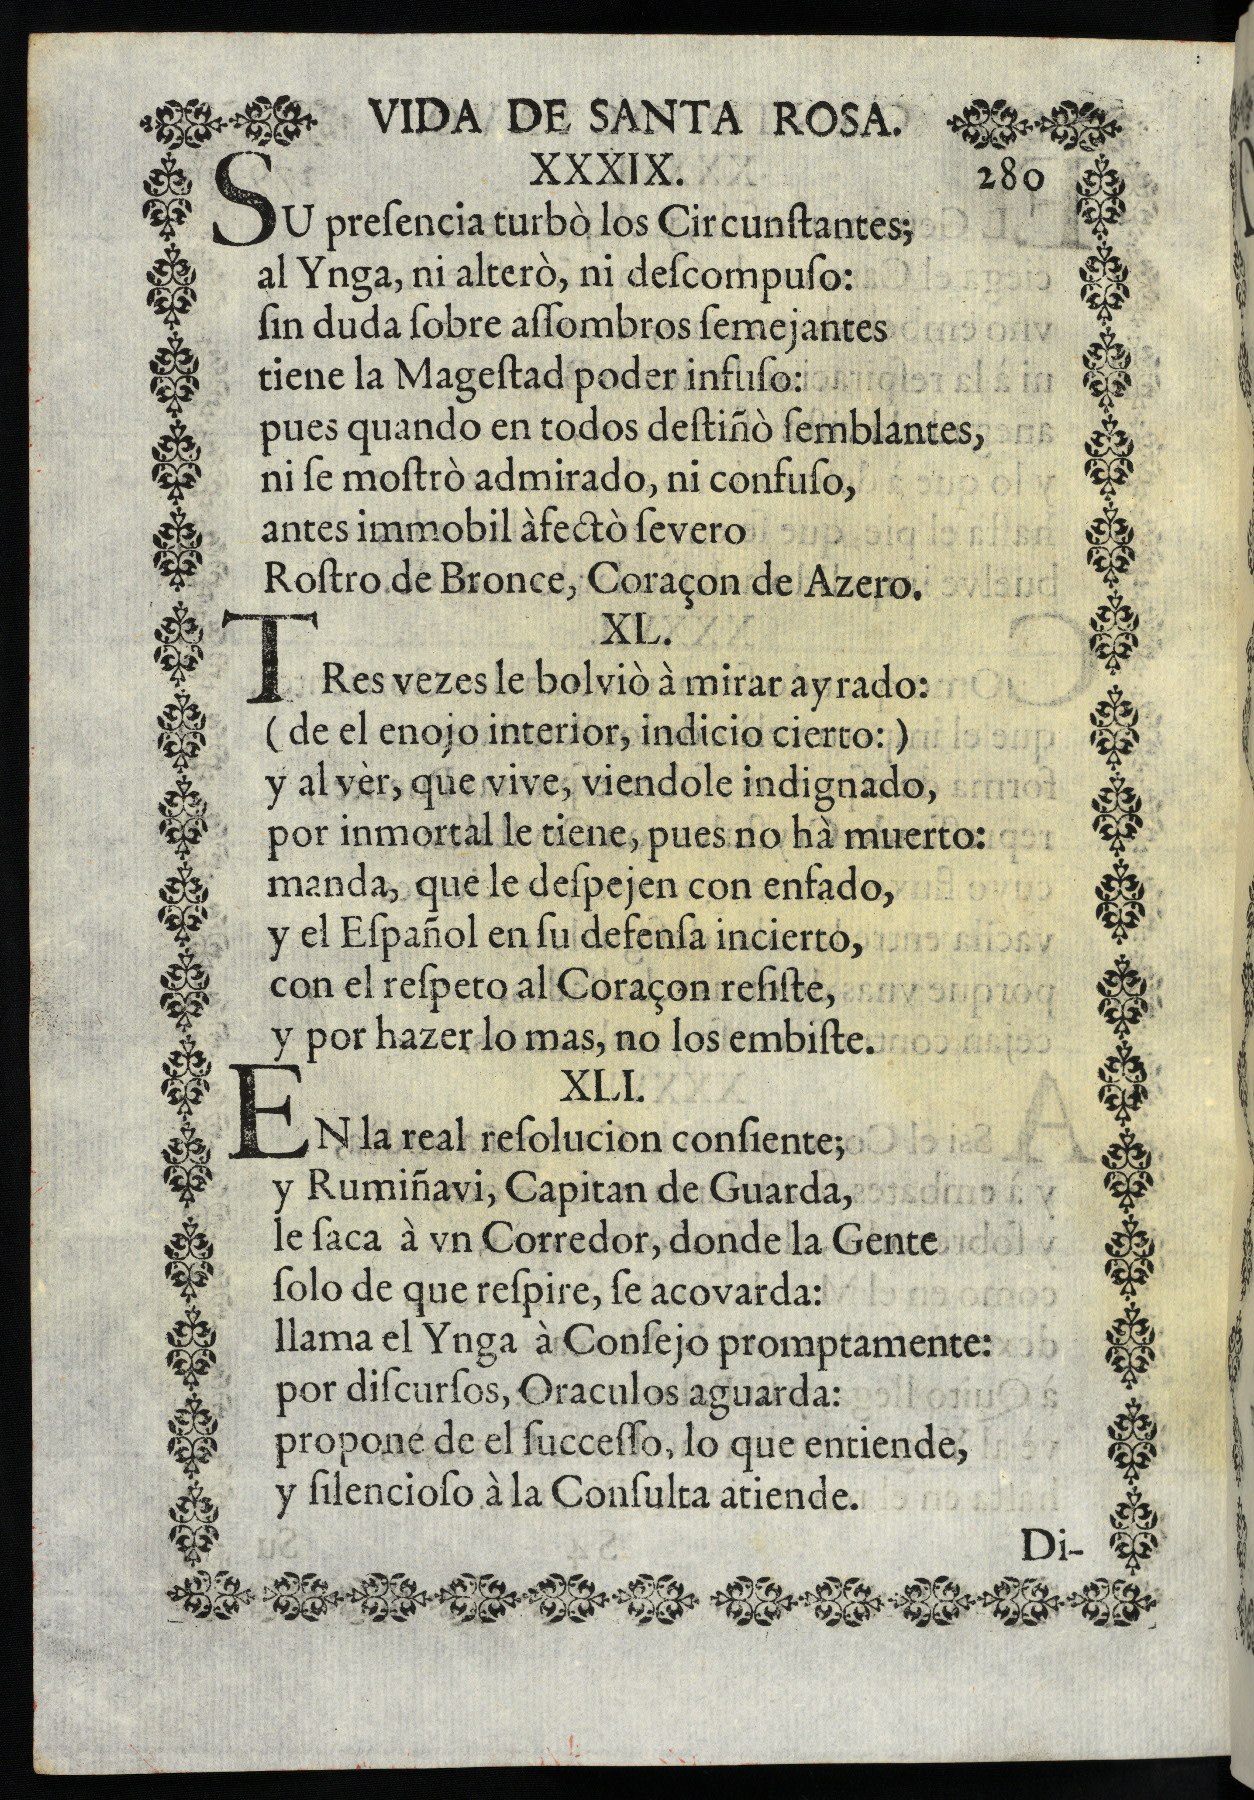 VIDA DE SANTA ROSA.
XXXIX. 280
SU preſencia turbò los Circunſtantes;
al Ynga, ni alterò, ni deſcompuſo:
ſin duda ſobre aſſombros ſemejantes
tiene la Mageſtad poder infuſo:
pues quando en todos deſtiñò ſemblantes,
ni ſe moſtrò admirado, ni confuſo,
antes immobil àfectò ſevero
Roſtro de Bronce, Coraçon de Azero.
XL.
TRes vezes le bolviò à mirar ayrado:
( de el enojo interior, indicio cierto: )
y al vèr, que vive, viendole indignado,
por inmortal le tiene, pues no hà muerto:
manda, que le deſpejen con enfado,
y el Eſpañol en ſu defenſa incierto,
con el reſpeto al Coraçon reſiſte,
y por hazer lo mas, no los embiſte.
XLI.
EN la real reſolucion conſiente;
y Rumiñavi, Capitan de Guarda,
le ſaca à vn Corredor, donde la Gente
ſolo de que reſpire, ſe acovarda:
llama el Ynga à Conſejo promptamente:
por diſcurſos, Oraculos aguarda:
propone de el ſucceſſo, lo que entiende,
y ſilencioſo à la Conſulta atiende.
Di-